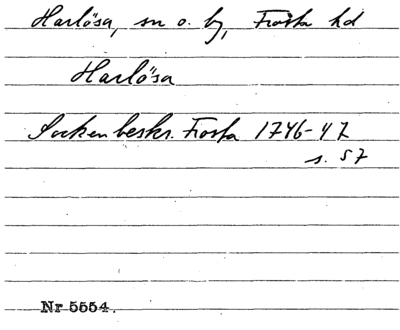 Harlösa, sn o. by, Frosta hd
Harlösa
Sockenbeskr. Frosta 1746-47
s. 57
Nr 5554.